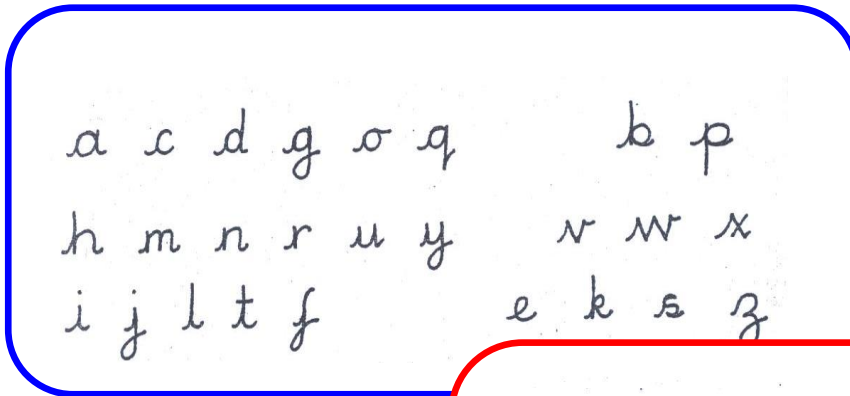 a c d g o q b p
h m n r u y v w x
i j l t f e k s z